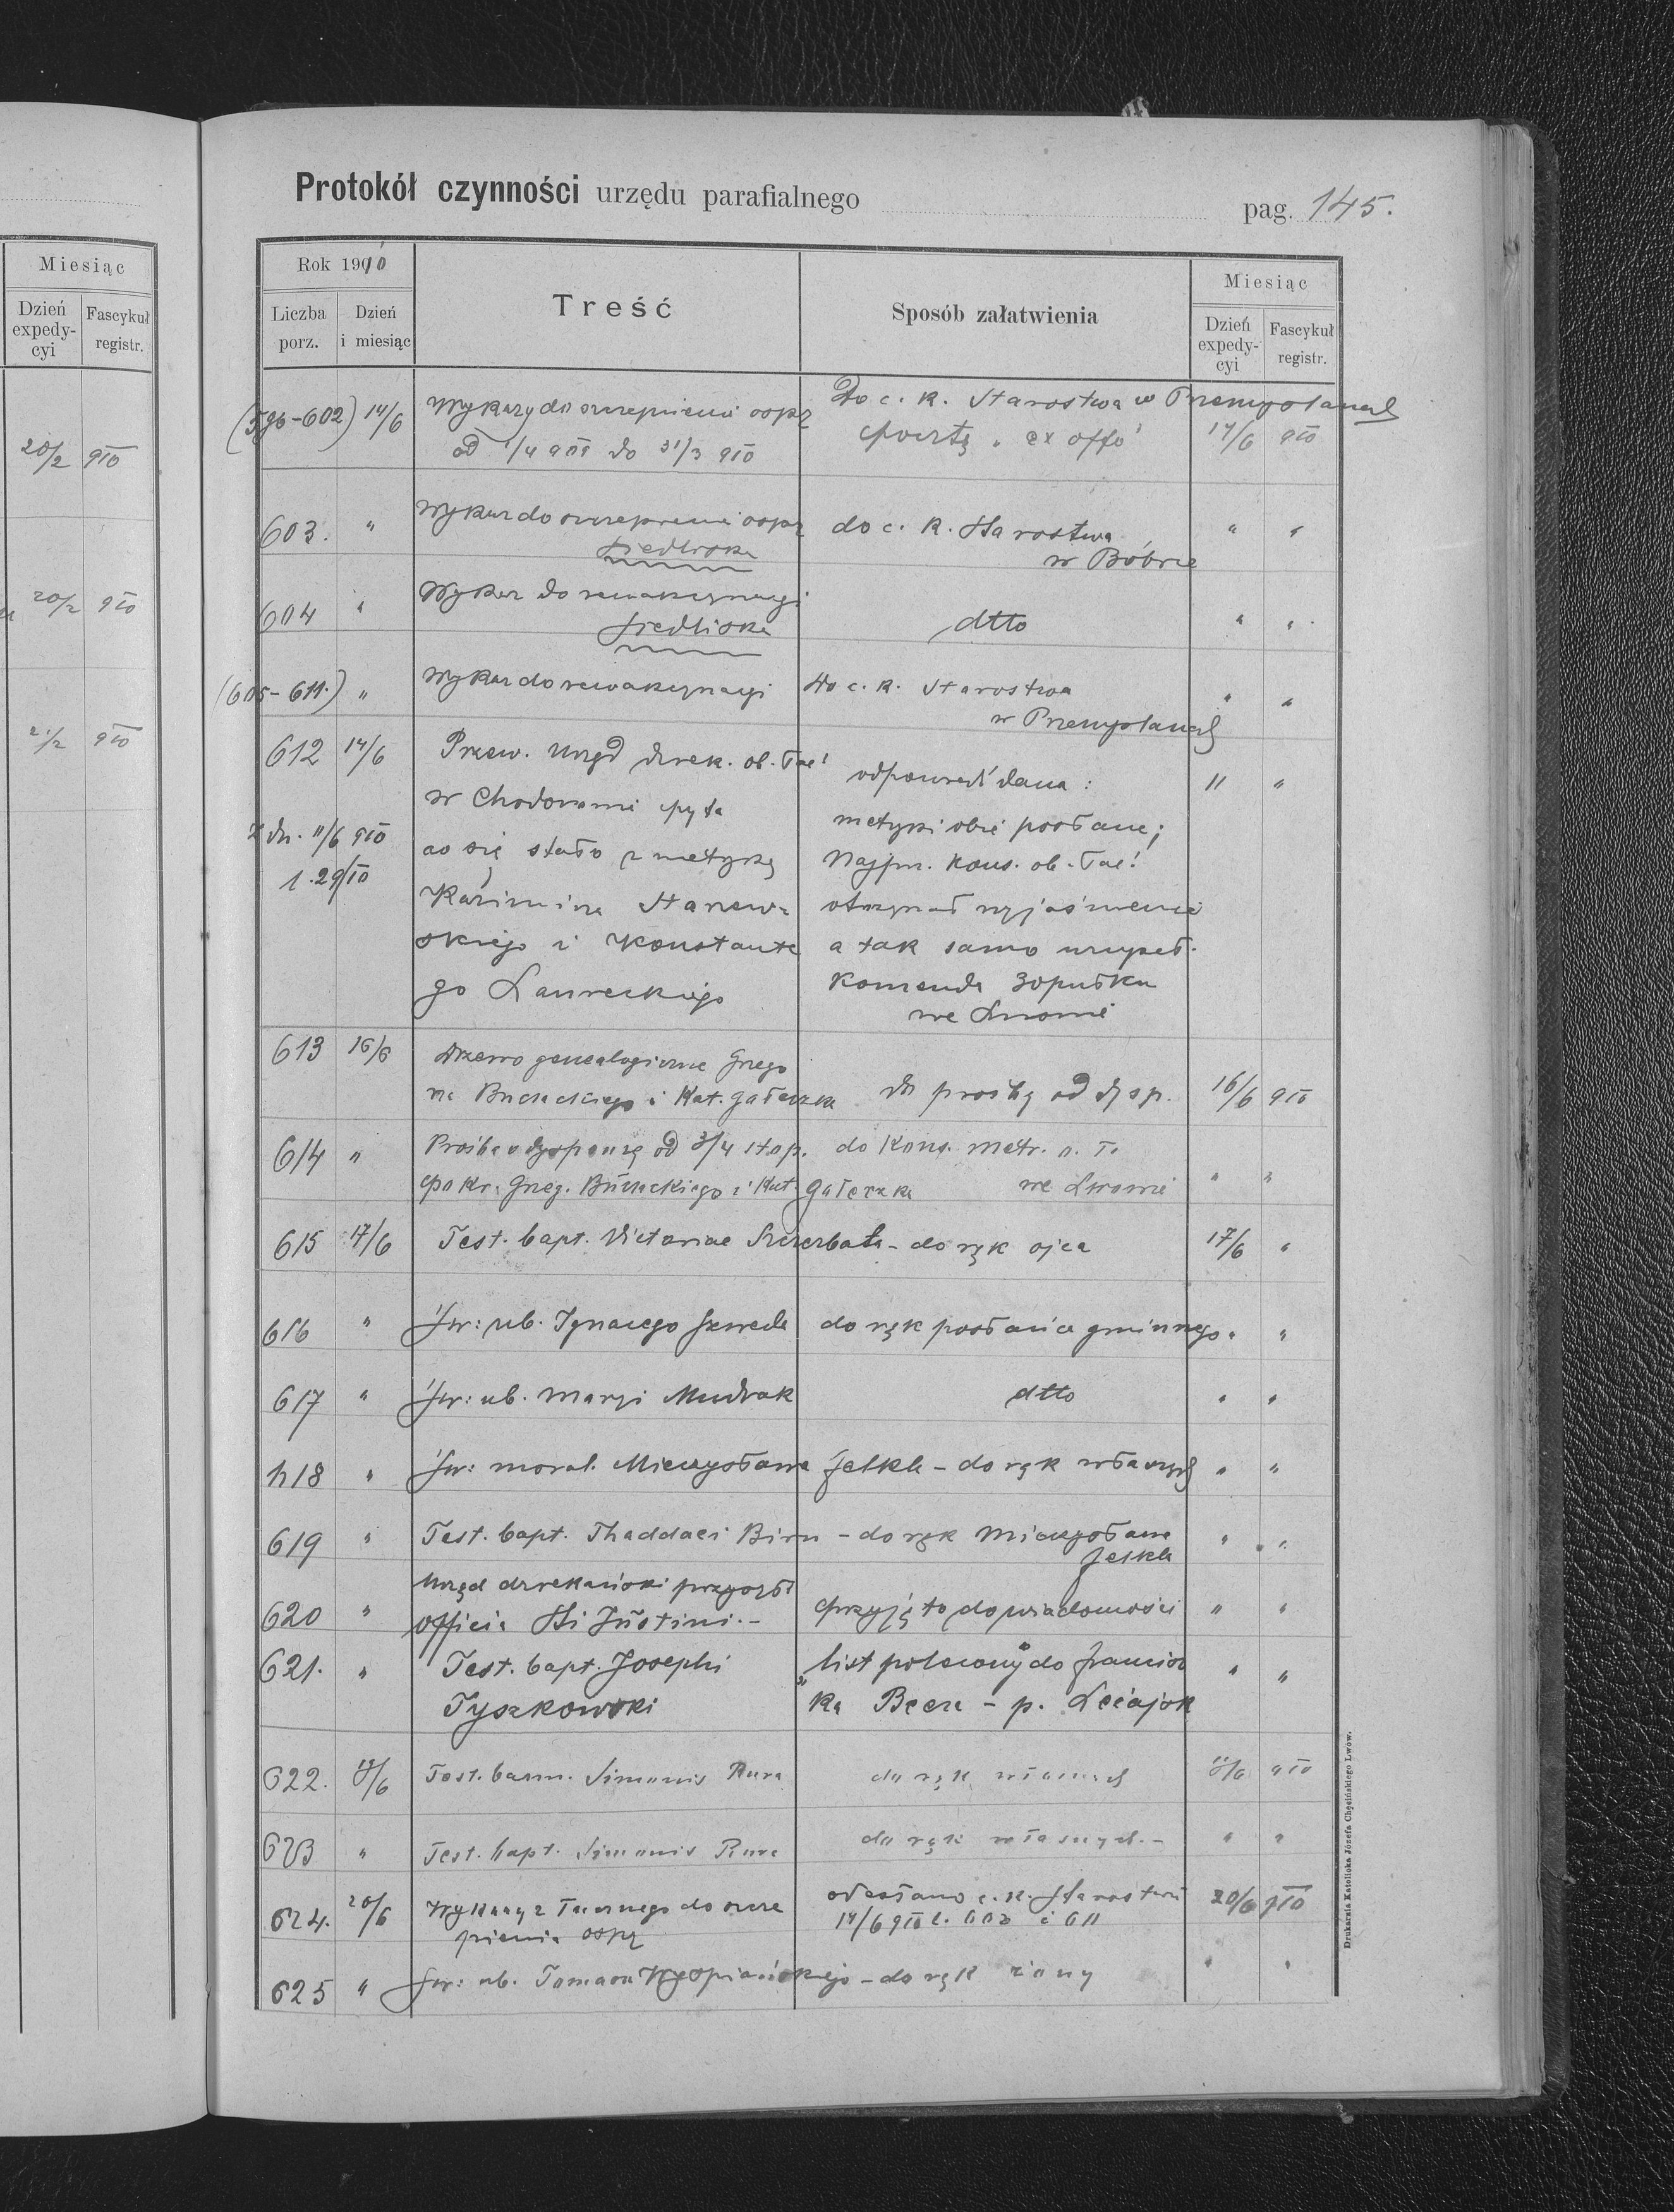 Miesiąc
Dzień expedycyi
Fascykuł registr.
20/2 910
20/2 910
2/2 910
Protokół czynności urzędu parafialnego pag. 145.
Rok 1910
Liczba porz.
Dzień i miesiąc
Treść
Sposób załatwienia
Miesiąc
Dzień expedycyi
Fascykuł registr.
(596-602) 14/6 Wykazy do szczepienia ospy Do c. k. Starostwa w Przemyślanach
od 1/4 909 do 31/3 910 pocztą „ex offo" 14/6 910
603. " Wykaz do szczepienia ospy do c. k. Starostwa " "
Siedliska w Bóbrce
604 " Wykaz do rewakcynacyi
Siedliska dtto " "
(605-611.) " Wykaz do rewakcynacyi do c. k. Starostwa " "
w Przemyślanach
612 14/6 Przew. Urząd dziek. ob. łac. odpowiedź dana: " "
w Chodorowie pyta metryki obie posłane;
z dn. 11/6 910 co się stało z metryką Najprz. Kons. ob. łac.
l. 29/10 Kazimirza Starzew- otrzymał wyjaśnienie
skiego i Konstante a tak samo uzupeł.
go Laureckiego komenda 30 pułku
we Lwowie
613 16/6 Drzewo genealogiczne Grzego
rza Buczackiego i Kat. Gałeczka do prośby od dysp. 16/6 910
614 " Prośba o dyspenzę od 3/4 stop. do Kons. metr. o. ł.
pokr. Grzeg. Buczackiego i Kat. Gałeczka we Lwowie " "
615 17/6 Test. bapt. Victoriae Szczerbata - do rąk ojca 17/6 "
616 " Św: ub. Ignacego Szweda do rąk posłańca gminnego " "
617 " Św: ub. Maryi Mudrak dtto " "
618 " Św: moral. Mieczysława Jelkla - do rąk własnych " "
619 " Test. bapt. Thaddaei Birn - do rąk Mieczysława " "
Jelkla
Urząd dziekański przysyła
620 " officia Sti Justini.- przyjęto do wiadomości " "
621. " Test. bapt. Josephi „list polecony" do Francisz " "
Tyszkowski ka Becza - p. Leżajsk
622. 18/6 Test. bann. Simonis Rura do rąk własnych 18/6 910
623 " Test. bapt. Simonis Rura do rąk własnych.- " "
624. 20/6 Wykazy z Tucznego do szcze odesłano c. k. Starostwu 20/6 910
pienia ospy 14/6 910 l. 602 i 611
625 " Św: ub. Tomasza Wyspiańskiego - do rąk żony " "
Drukarnia Katolicka Józefa Chęcińskiego Lwów.